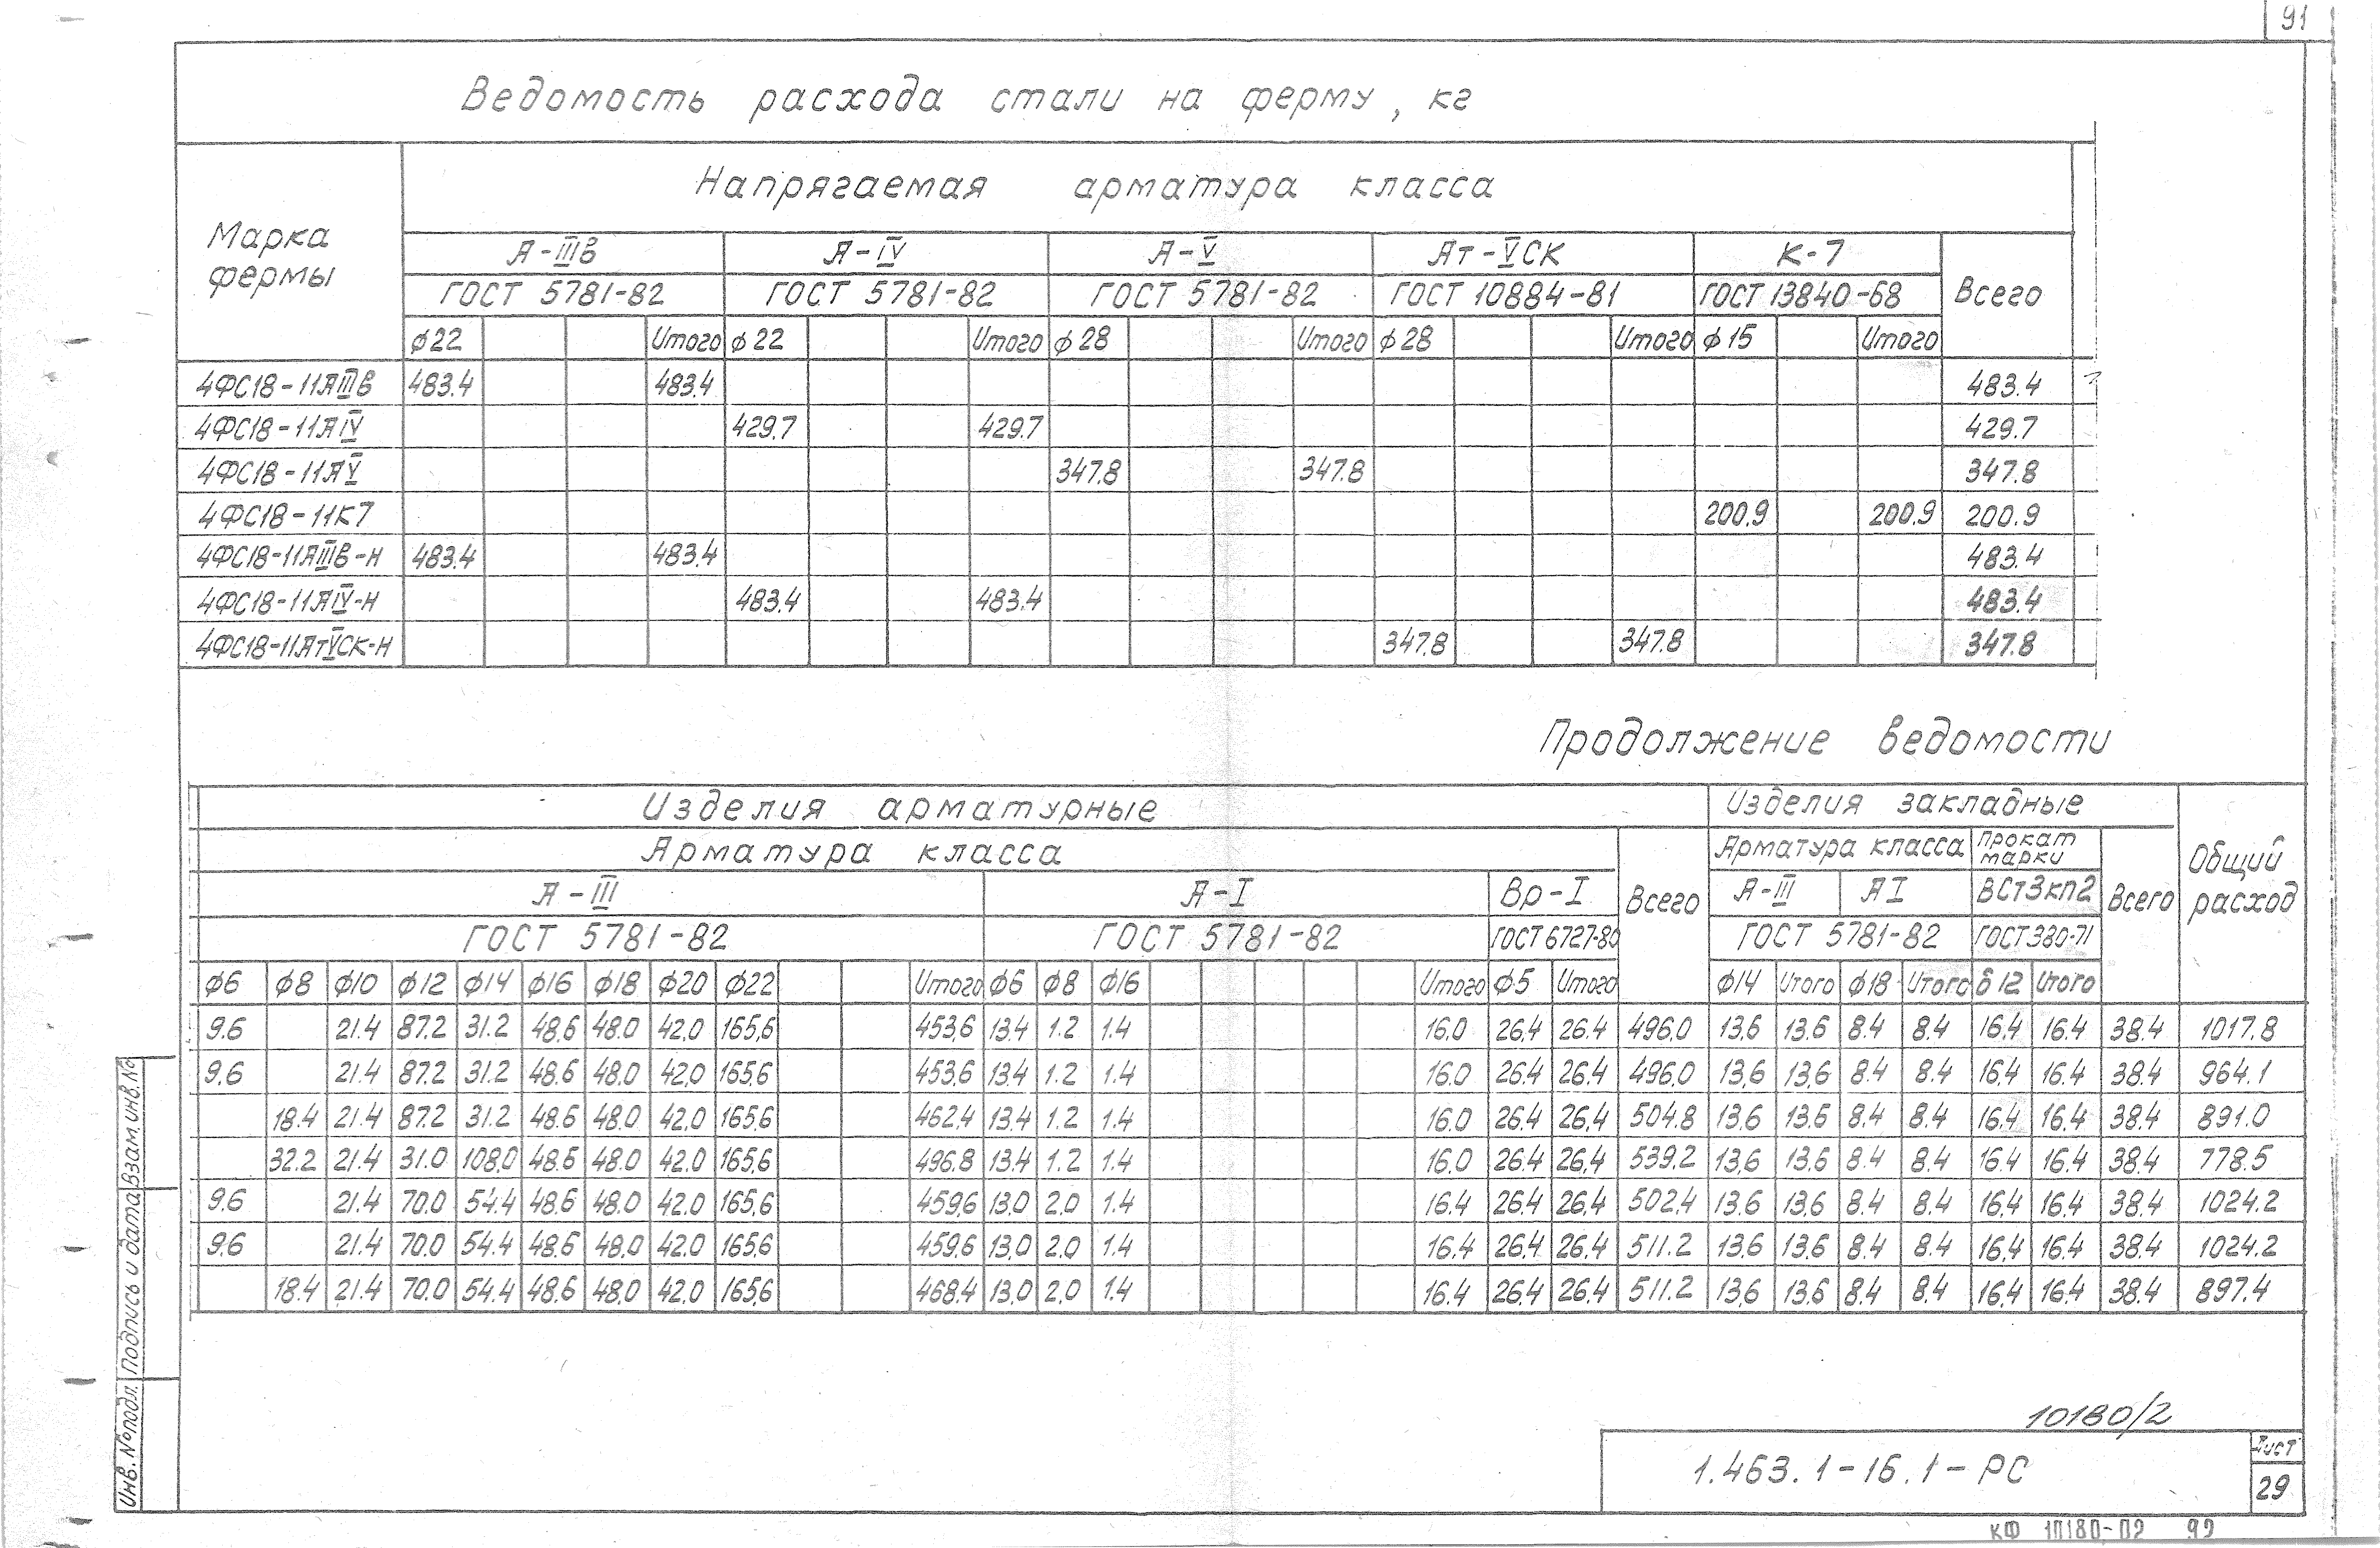 91
Ведомость расхода стали на ферму, кг
Марка фермы
Напрягаемая арматура класса
А-IIIв А-IV А-V Ат-VСК К-7 Всего
ГОСТ 5781-82 ГОСТ 5781-82 ГОСТ 5781-82 ГОСТ 10884-81 ГОСТ 13840-68
ф22 Итого ф22 Итого ф28 Итого ф28 Итого ф15 Итого
4ФС18-11АIIIв 483.4 483.4 483.4
4ФС18-11АIV 429.7 429.7 429.7
4ФС18-11АV 347.8 347.8 347.8
4ФС18-11К7 200.9 200.9 200.9
4ФС18-11АIIIв-Н 483.4 483.4 483.4
4ФС18-11АIV-Н 483.4 483.4 483.4
4ФС18-11АтVСК-Н 347.8 347.8 347.8
Продолжение ведомости
Изделия арматурные Изделия закладные Общий расход
Арматура класса Всего Арматура класса Прокат марки Всего
А-III А-I Вр-I А-III АI ВСт3кп2
ГОСТ 5781-82 ГОСТ 5781-82 ГОСТ 6727-80 ГОСТ 5781-82 ГОСТ 380-71
ф6 ф8 ф10 ф12 ф14 ф16 ф18 ф20 ф22 Итого ф6 ф8 ф16 Итого ф5 Итого ф14 Итого ф18 Итого δ12 Итого
9.6 21.4 87.2 31.2 48.6 48.0 42.0 165.6 453.6 13.4 1.2 1.4 16.0 26.4 26.4 496.0 13.6 13.6 8.4 8.4 16.4 16.4 38.4 1017.8
9.6 21.4 87.2 31.2 48.6 48.0 42.0 165.6 453.6 13.4 1.2 1.4 16.0 26.4 26.4 496.0 13.6 13.6 8.4 8.4 16.4 16.4 38.4 964.1
18.4 21.4 87.2 31.2 48.6 48.0 42.0 165.6 462.4 13.4 1.2 1.4 16.0 26.4 26.4 504.8 13.6 13.6 8.4 8.4 16.4 16.4 38.4 891.0
32.2 21.4 31.0 108.0 48.6 48.0 42.0 165.6 496.8 13.4 1.2 1.4 16.0 26.4 26.4 539.2 13.6 13.6 8.4 8.4 16.4 16.4 38.4 778.5
9.6 21.4 70.0 54.4 48.6 48.0 42.0 165.6 459.6 13.0 2.0 1.4 16.4 26.4 26.4 502.4 13.6 13.6 8.4 8.4 16.4 16.4 38.4 1024.2
9.6 21.4 70.0 54.4 48.6 48.0 42.0 165.6 459.6 13.0 2.0 1.4 16.4 26.4 26.4 511.2 13.6 13.6 8.4 8.4 16.4 16.4 38.4 1024.2
18.4 21.4 70.0 54.4 48.6 48.0 42.0 165.6 468.4 13.0 2.0 1.4 16.4 26.4 26.4 511.2 13.6 13.6 8.4 8.4 16.4 16.4 38.4 897.4
Инв. № подл. Подпись и дата Взам. инв. №
10180/2
1.463.1-16.1-РС
Лист
29
КФ 10180-02 92